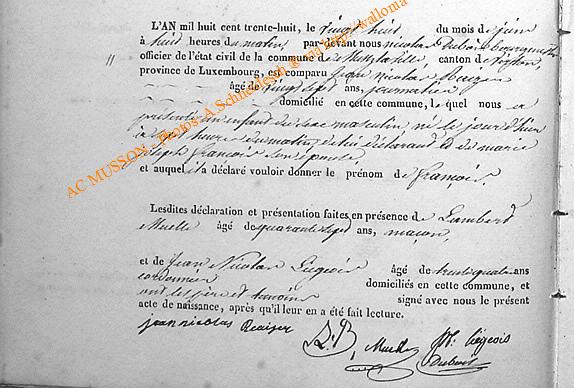 L'AN mil huit cent trente-huit, le vingt huit du mois de juin
à huit heures du matin, par-devant nous nicolas Dubois bourgmestre
officier de l'état civil de la commune de canton de
province de Luxembourg, est comparu Jean nicolas
âgé de vingt sept ans, journalier
domicilié en cette commune, lequel nous a
présenté un enfant du sexe masculin né le jour d'hier
à heures du matin, de lui déclarant et de marie
joseph françois son épouse
et auquel il a déclaré vouloir donner le prénom de françois.
Lesdites déclaration et présentation faites en présence de Lambert
Muelle âgé de quarante sept ans, maçon,
et de Jean Nicolas âgé de trente quatre ans
cordonnier domiciliés en cette commune, et
ont les père et témoins signé avec nous le présent
acte de naissance, après qu'il leur en a été fait lecture.
jean nicolas
Dubois
AC MUSSON - Photos: A.Schneidesch @ http://walloma